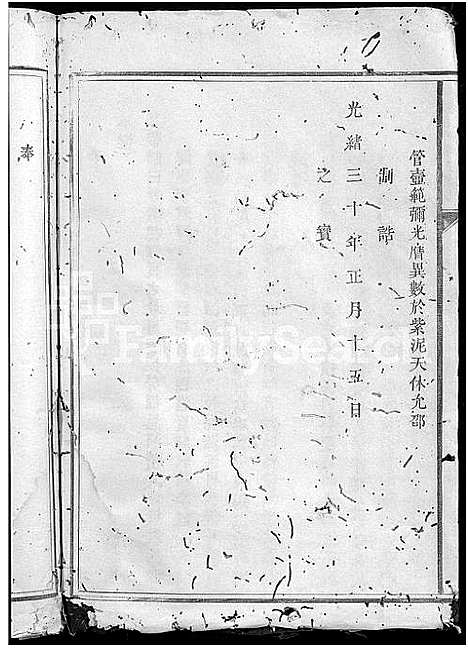 管壼範彌光膺異數於紫泥天休允卲
制誥
光緒三十年正月十五日
之寶
奉
FamilySearch